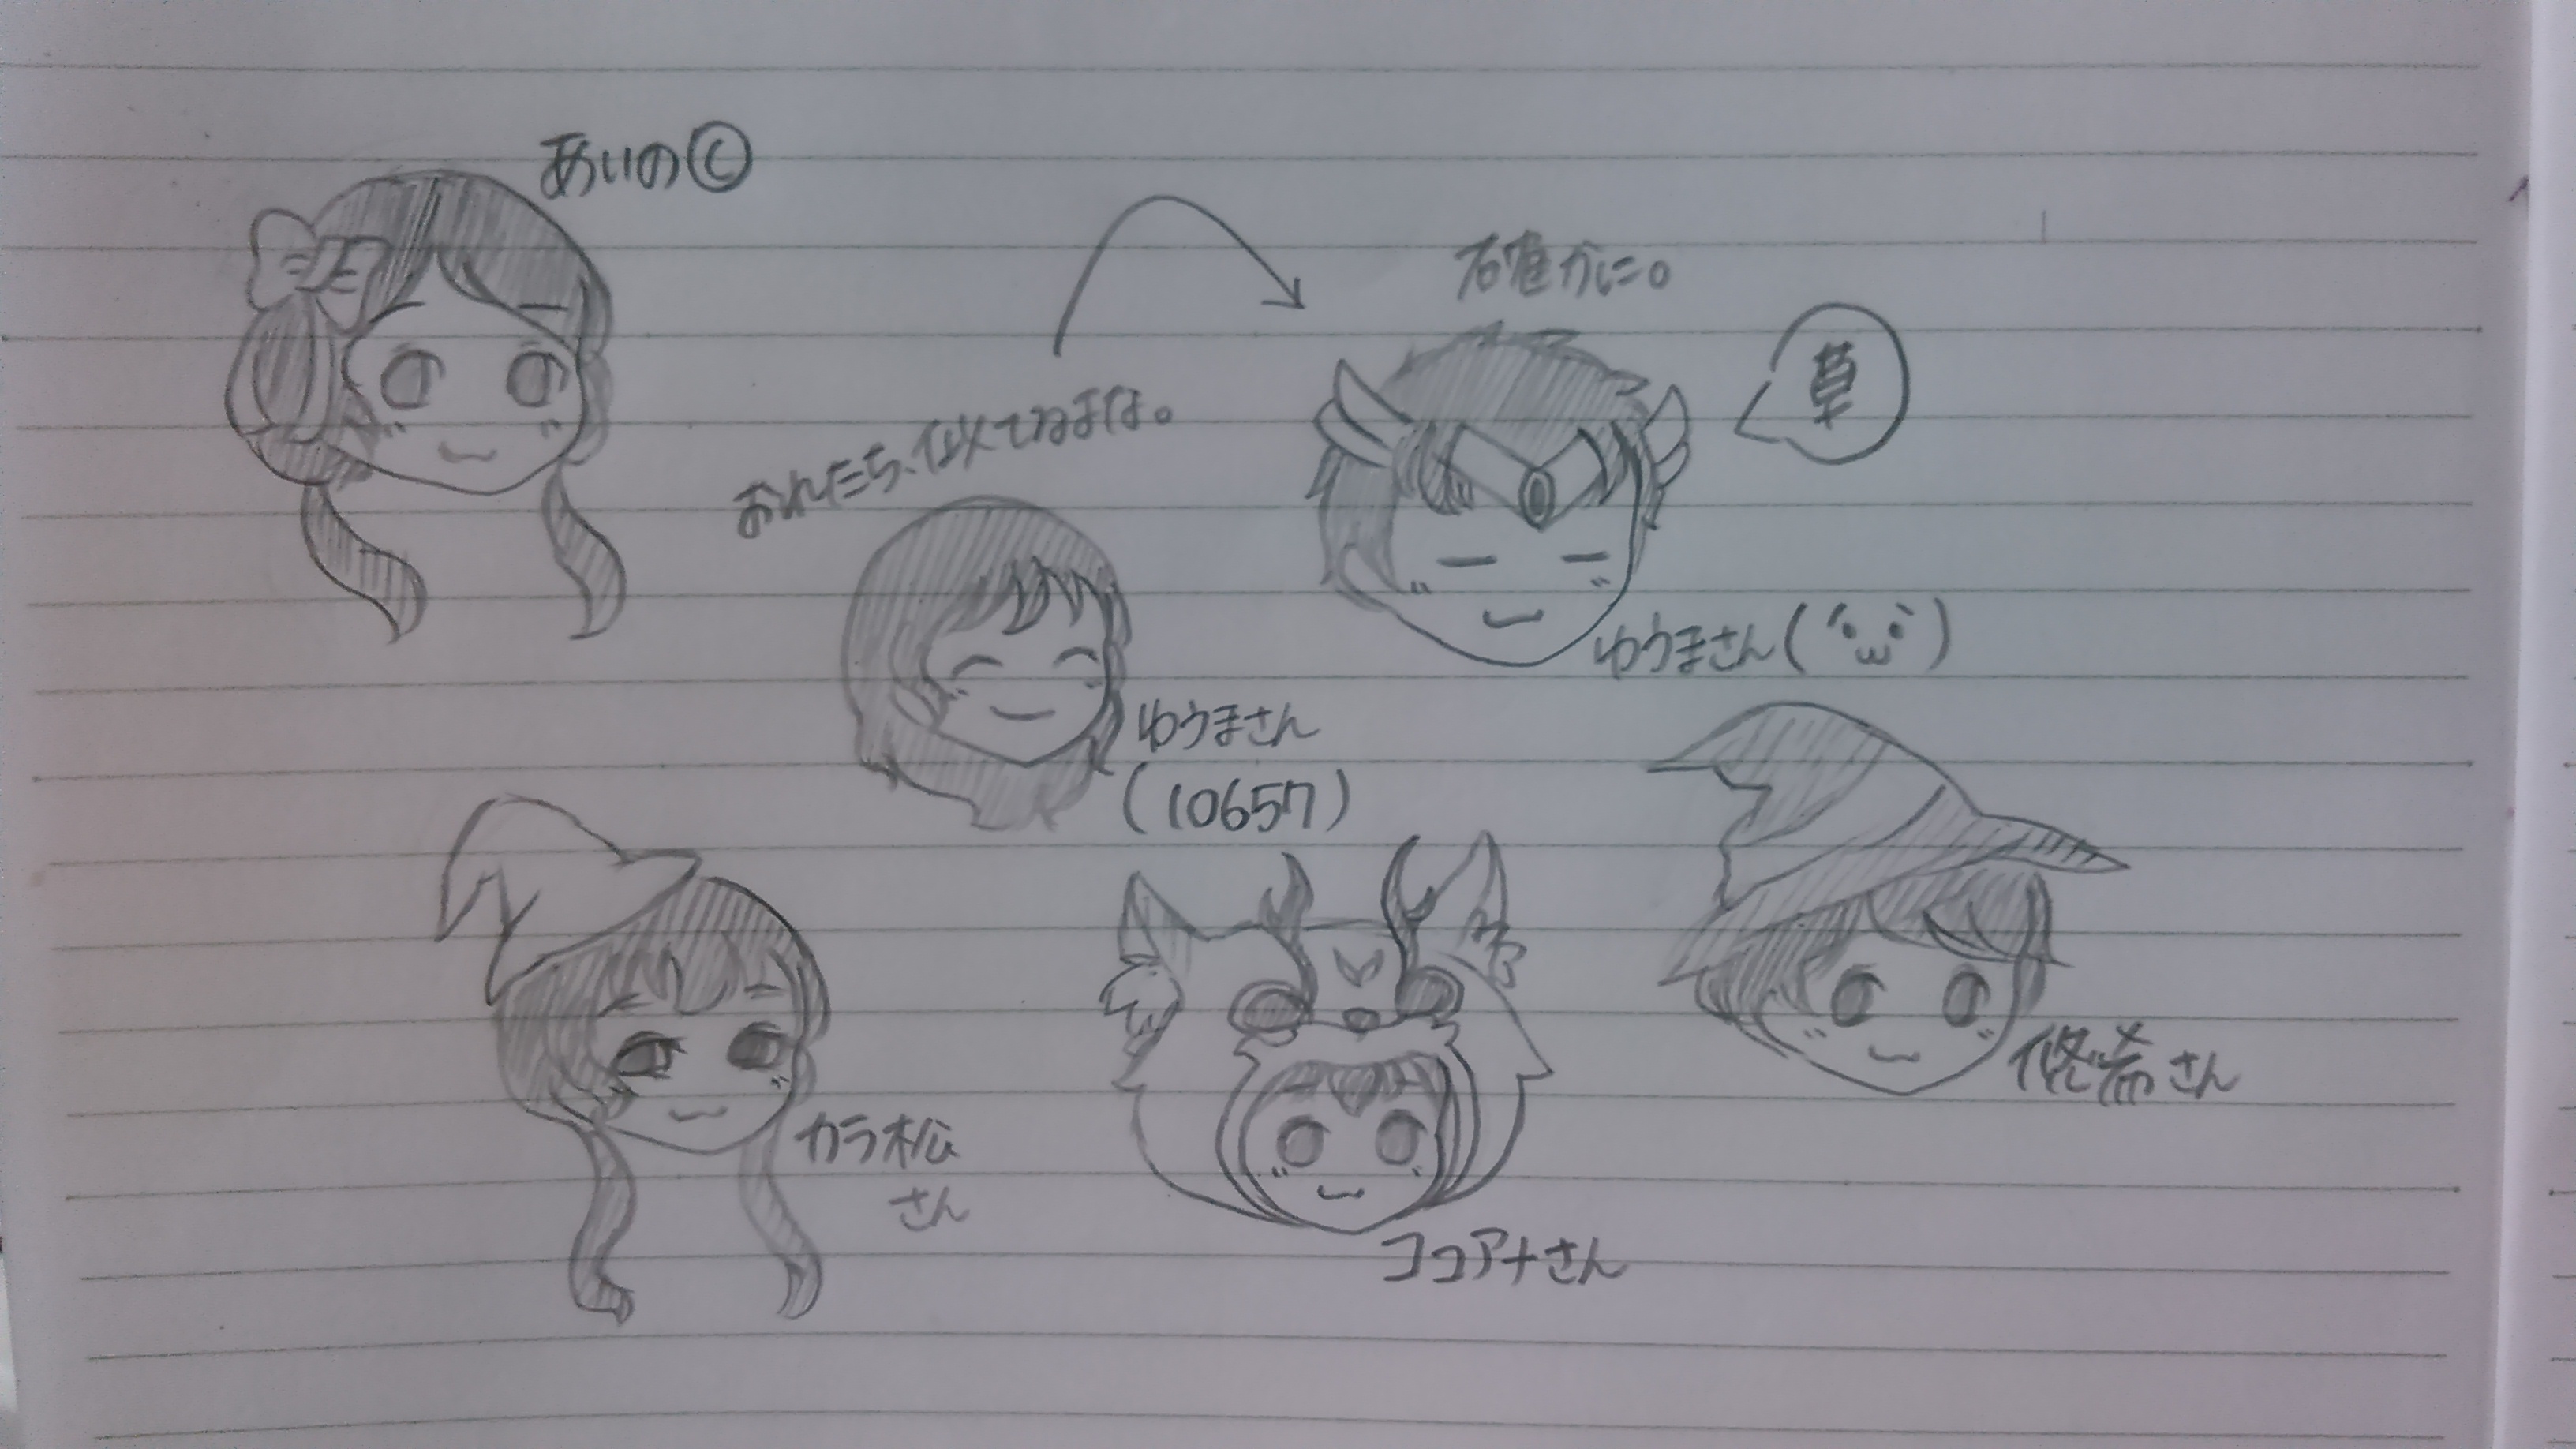 あいの©
確かに。
草
おれたち、似てねまな。
ゆうまさん(´･ω･`)
ゆうまさん
(10657)
カラ松
さん
修希さん
ココアナさん